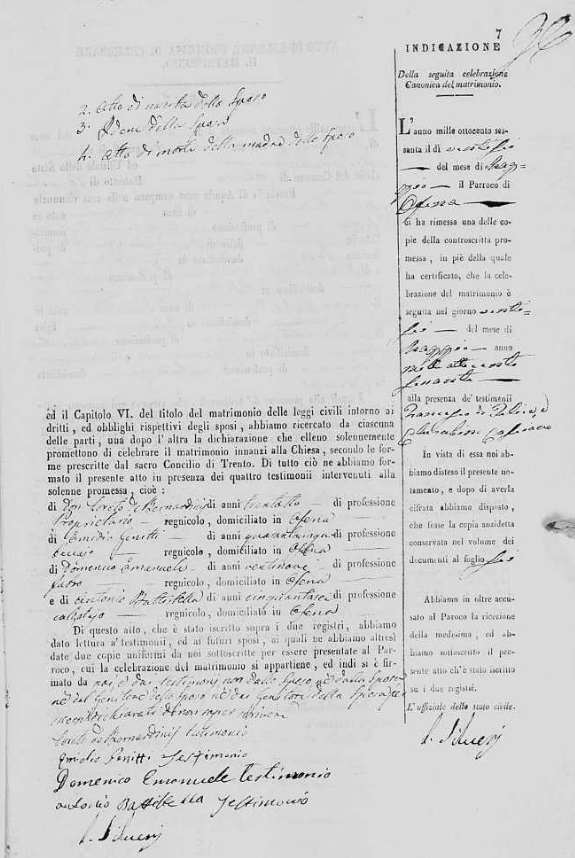 2. Atto di morte dello Sposo
3. Idem della Sposa
4. Atto di morte della madre dello Sposo
ed il Capitolo VI. del titolo del matrimonio delle leggi civili intorno ai
dritti, ed obblighi rispettivi degli sposi, abbiamo ricercato da ciascuna
delle parti, una dopo l'altra la dichiarazione che elleno solennemente
promettono di celebrare il matrimonio innanzi alla Chiesa, secondo le for-
me prescritte dal sacro Concilio di Trento. Di tutto ciò ne abbiamo for-
mato il presente atto in presenza dei quattro testimonii intervenuti alla
solenne promessa, cioè:
di Don Loreto de Bernardinis di anni trentotto di professione
Proprietario regnicolo, domiciliato in Ofena
di Emidio di anni di professione
regnicolo, domiciliato in Ofena
di Domenico Emanuele di anni ventinove di professione
fabro regnicolo, domiciliato in Ofena
e di Antonio Battistella di anni di professione
calzolajo regnicolo, domiciliato in Ofena
Di questo atto, che è stato iscritto sopra i due registri, abbiamo
dato lettura a' testimonii, ed ai futuri sposi, ai quali ne abbiamo altresì
date due copie uniformi da noi sottoscritte per essere presentate al Pa-
roco, cui la celebrazione del matrimonio si appartiene, ed indi si è fir-
mato da noi e dai testimonj non dallo Sposo, e dalla Sposa
nè dal Genitore dello Sposo nè dai Genitori della Sposa per
di non saper scrivere
Loreto de Bernardinis testimonio
Testimonio
Domenico Emanuele testimonio
Antonio Battistella Testimonio
7
INDICAZIONE
Della seguita celebrazione
Canonica del matrimonio.
L'anno mille ottocento ses-
santa il dì ventisei
del mese di Mag-
gio il Parroco di
Ofena
ci ha rimessa una delle co-
pie della controscritta pro-
messa, in piè della quale
ha certificato, che la cele-
brazione del matrimonio è
seguita nel giorno venti-
sei del mese di
Maggio anno
mille ottocento
sessanta
alla presenza de' testimonii
Francesco di
In vista di essa noi ab-
biamo disteso il presente no-
tamento, e dopo di averla
cifrata abbiamo disposto,
che fosse la copia anzidetta
conservata nel volume dei
documenti al foglio sei
Abbiamo in oltre accu-
sato al Paroco la ricezione
della medesima, ed ab-
biamo sottoscritto il pre-
sente atto ch'è stato iscritto
su i due registri.
L'uffiziale dello stato civile.